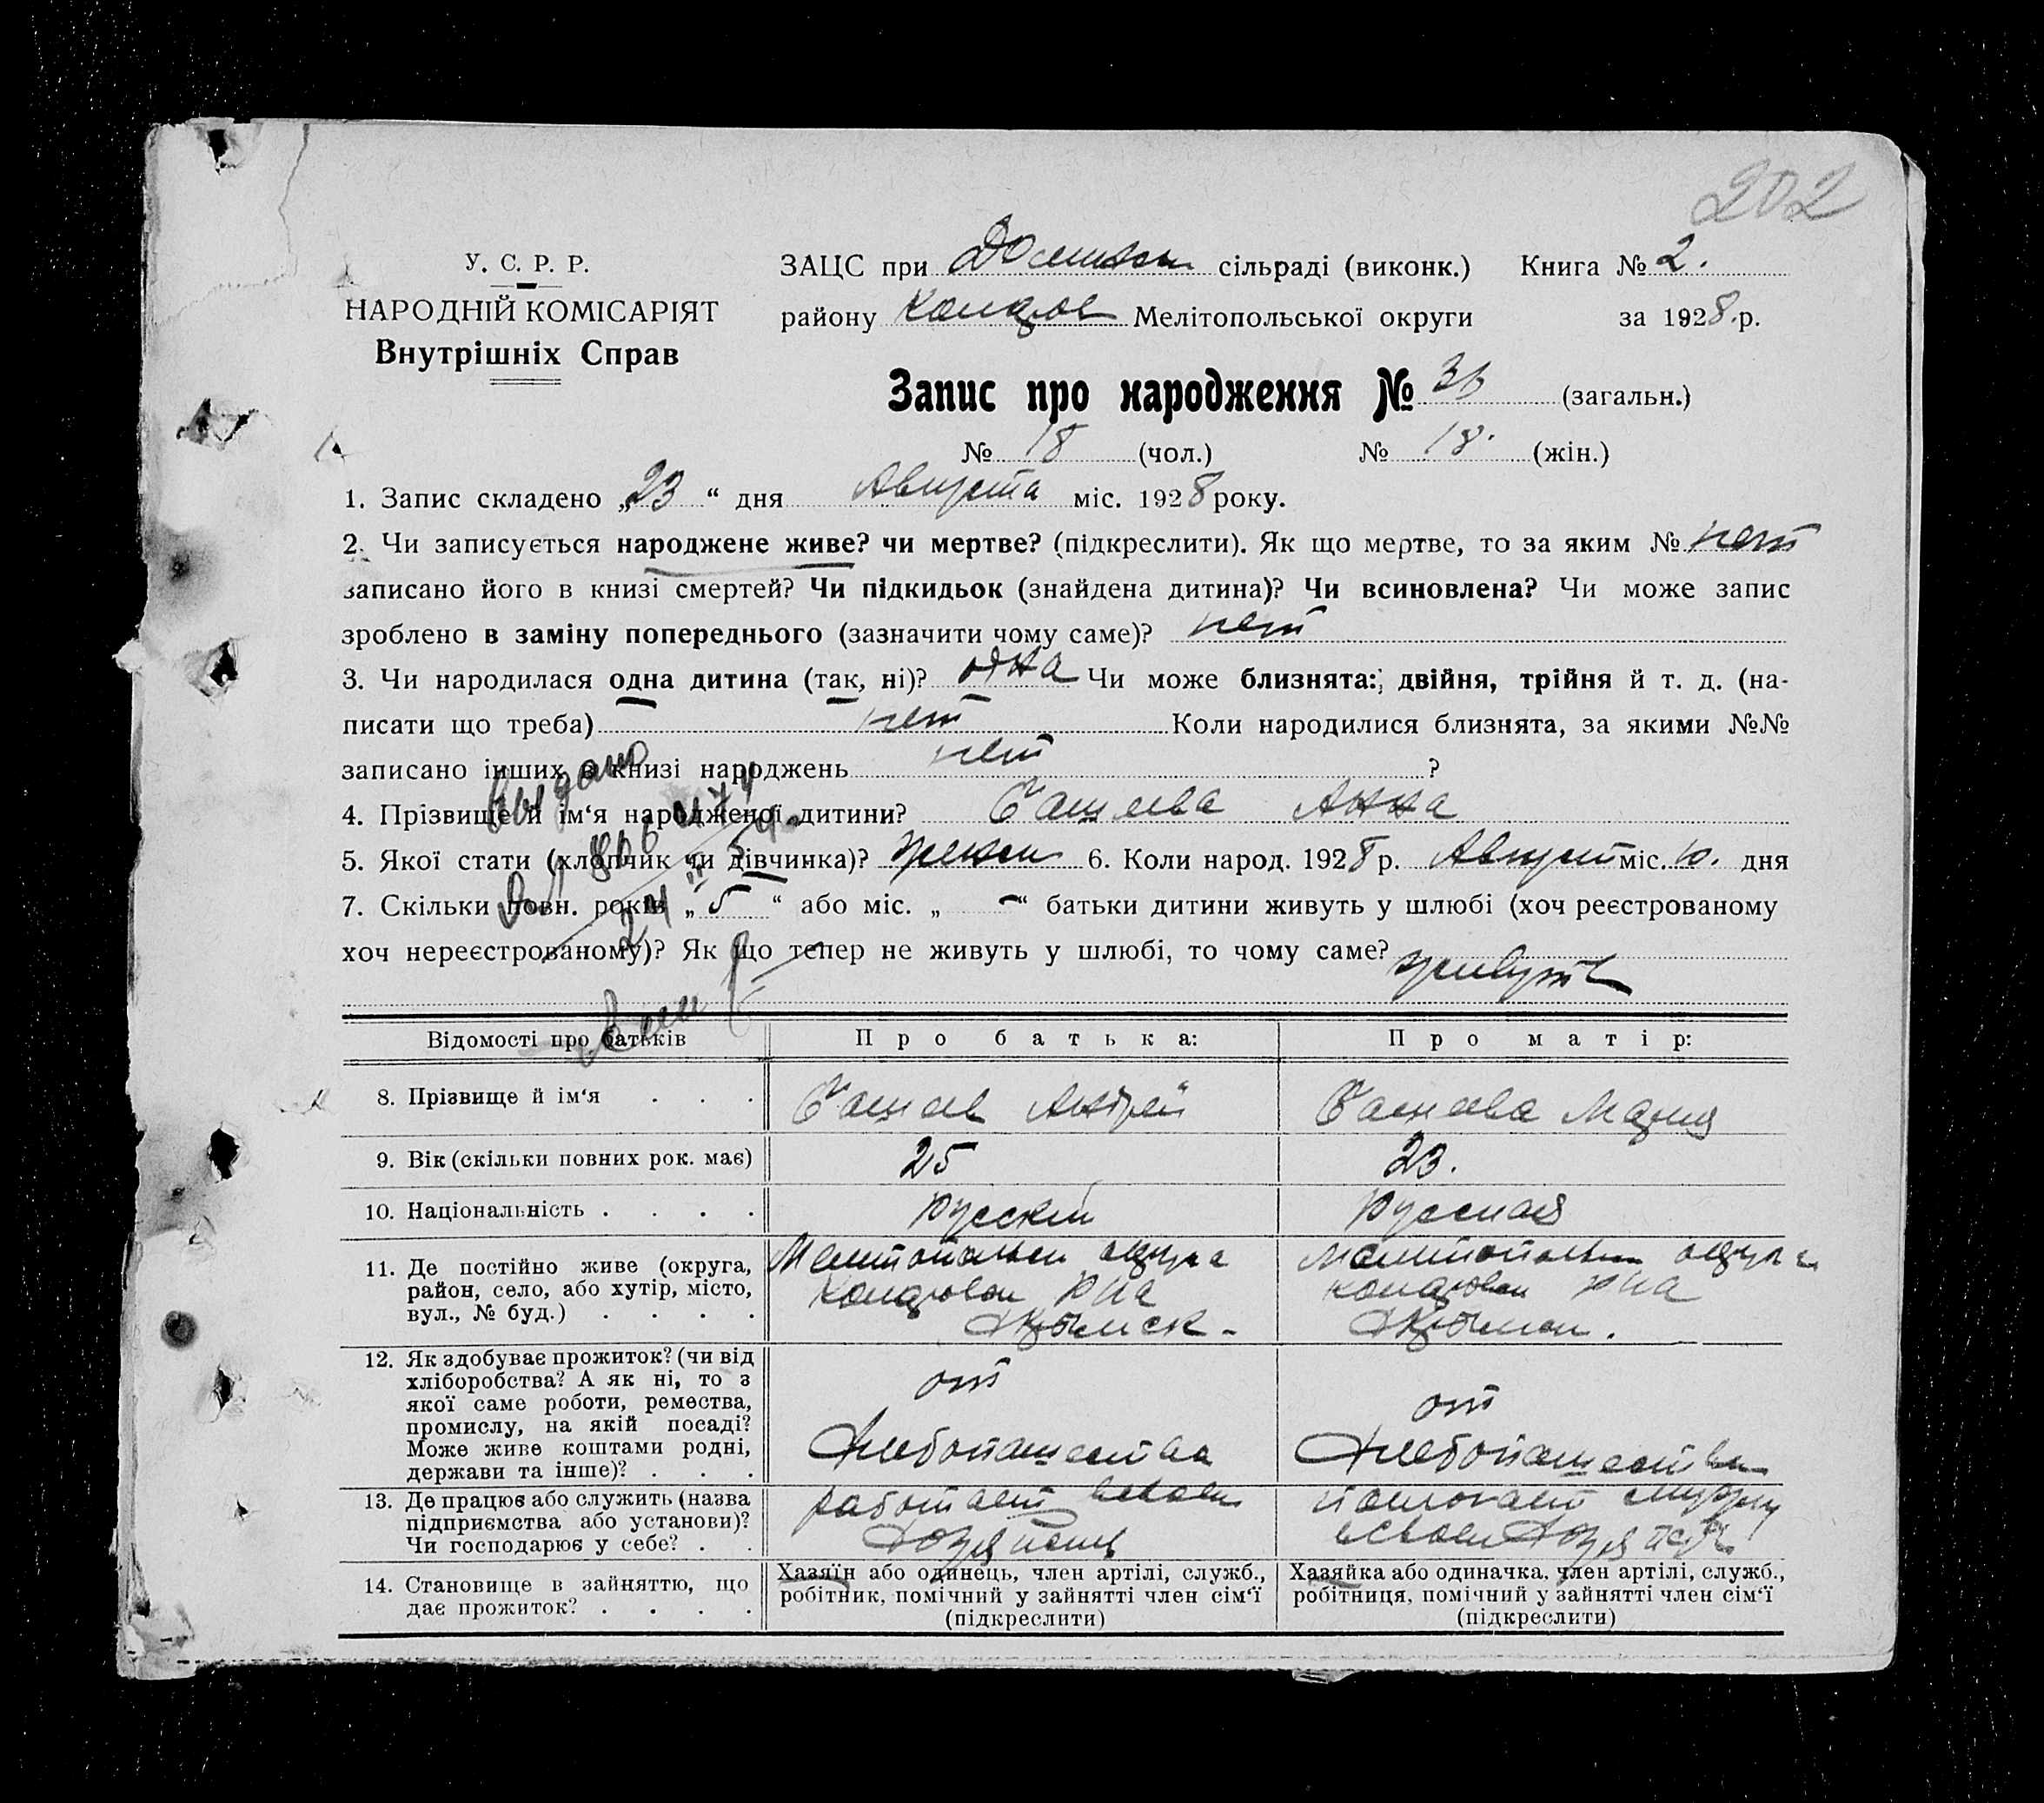 202
У. С. Р. Р.
НАРОДНІЙ КОМІСАРІЯТ
Внутрішніх Справ
ЗАЦС при сільраді (виконк.) Книга № 2.
району Мелітопольської округи за 1928.р.
Запис про народження № 36 (загальн.)
№ 18 (чол.) № 18. (жін.)
1. Запис складено „23“ дня Августа міс. 1928 року.
2. Чи записується народжене живе? чи мертве? (підкреслити). Як що мертве, то за яким № нет
записано його в книзі смертей? Чи підкидьок (знайдена дитина)? Чи всиновлена? Чи може запис
зроблено в заміну попереднього (зазначити чому саме)? нет
3. Чи народилася одна дитина (так, ні)? одна Чи може близнята: двійня, трійня й т. д. (на-
писати що треба) нет Коли народилися близнята, за якими №№
записано інших в книзі народжень нет ?
4. Прізвище й ім‘я народженої дитини? Анна
5. Якої стати (хлопчик чи дівчинка)? женск 6. Коли народ. 1928 р. Август міс. 10. дня
7. Скільки повн. років „5“ або міс. „-“ батьки дитини живуть у шлюбі (хоч реєстрованому
хоч нереєстрованому)? Як що тепер не живуть у шлюбі, то чому саме? живут
Выдано
Відомості про батьків
Про батька:
Про матір:
8. Прізвище й ім‘я . . .
Андрей
Мария
9. Вік (скільки повних рок. має)
25
23.
10. Національність . . . .
русский
русская
11. Де постійно живе (округа,
район, село, або хутір, місто,
вул., № буд.) . . . .
Мелитопольск округа
р на
Мелитопольск округа
р на
12. Як здобуває прожиток? (чи від
хліборобства? А як ні, то з
якої саме роботи, ремества,
промислу, на якій посаді?
Може живе коштами родні,
держави та інше)? . . .
от
Хлебопашества
от
Хлебопашества
13. Де працює або служить (назва
підприємства або установи)?
Чи господарює у себе? . .
работает в своем
хозяйстве
помогает мужу
в своем хозяйстве
14. Становище в зайняттю, що
дає прожиток? . . . .
Хазяїн або одинець, член артілі, служб.,
робітник, помічний у зайнятті член сім‘ї
(підкреслити)
Хазяйка або одиначка, член артілі, служб.,
робітниця, помічний у зайнятті член сім‘ї
(підкреслити)